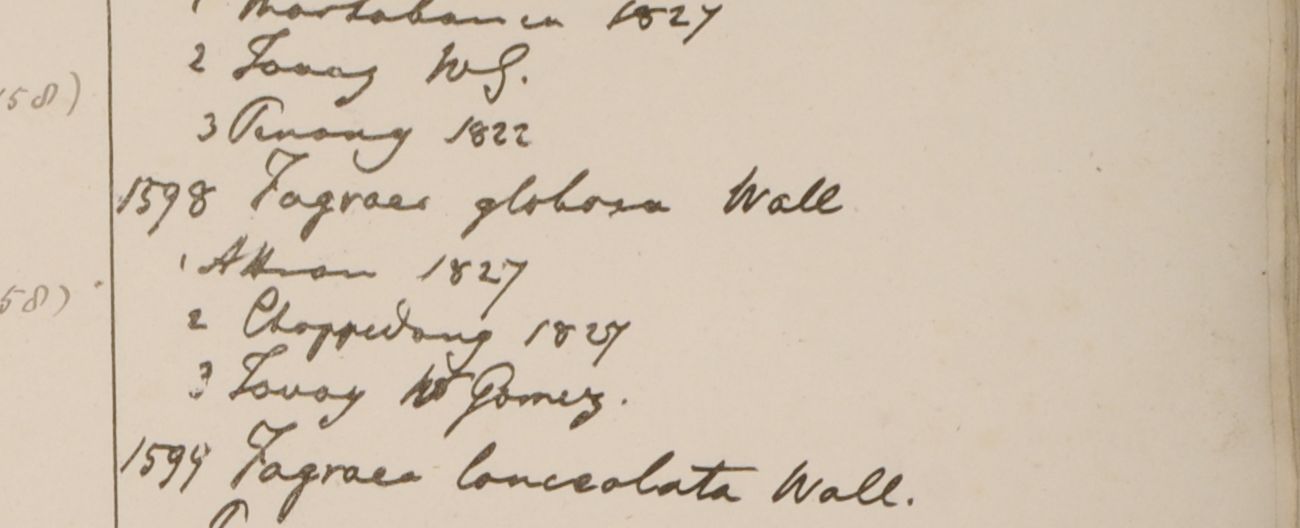 1 Martabania 1827
2 Tavoy W G.
3 Penang 1822
58)
1598 Fagraea globosa Wall
1 Attran 1827
2 Choppedong 1827
58)
3 Tavoy W Gomez.
1599 Fagraea lanceolata Wall.